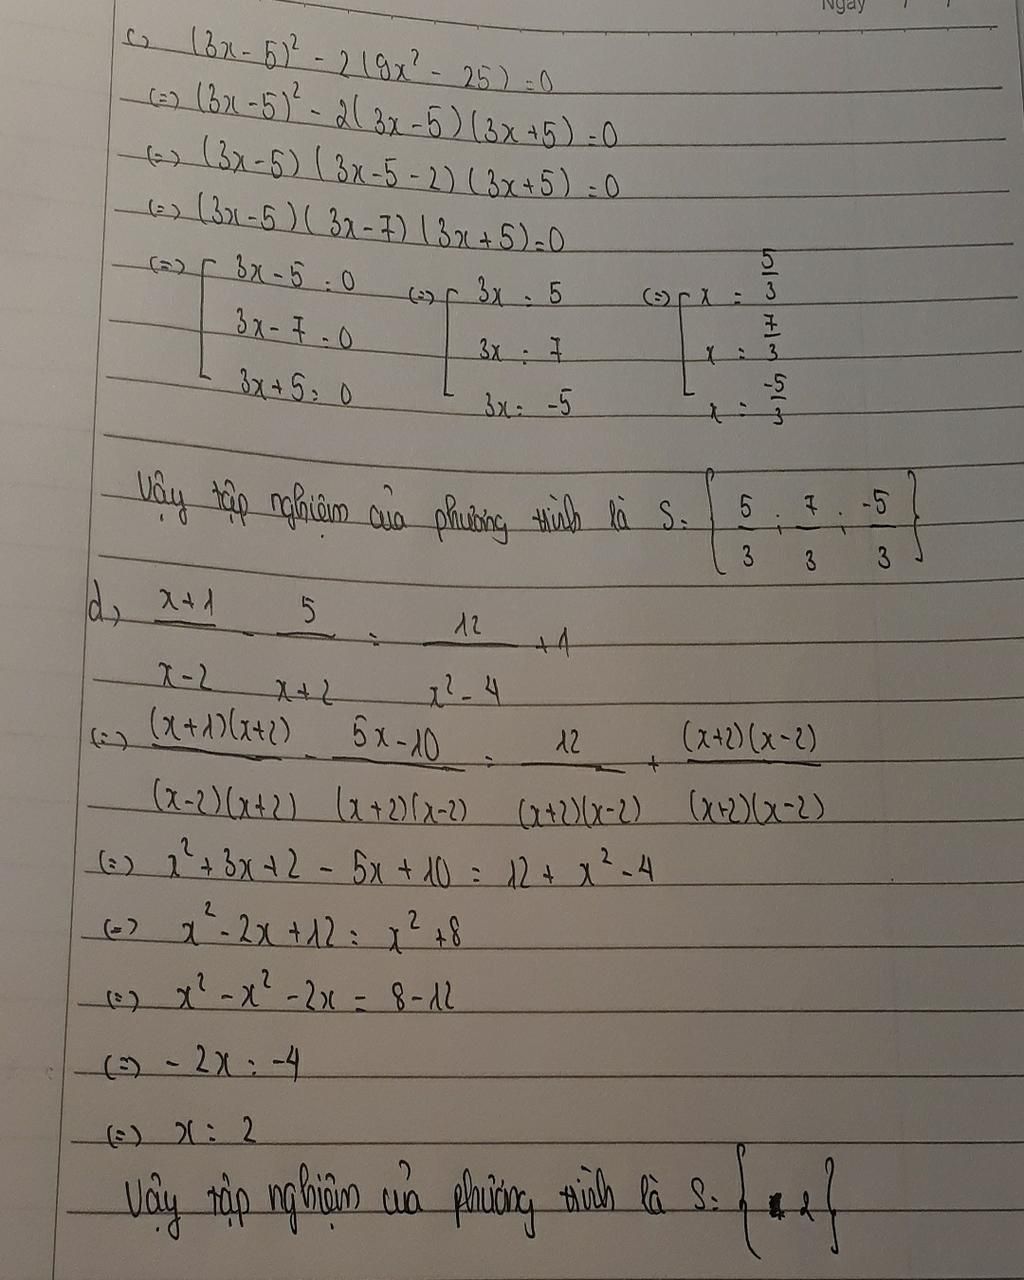 Ngày / /
c, (3x - 5)² - 2(9x² - 25) = 0
(=) (3x - 5)² - 2(3x - 5)(3x + 5) = 0
(=) (3x - 5)(3x - 5 - 2)(3x + 5) = 0
(=) (3x - 5)(3x - 7)(3x + 5) = 0
(=) [ 3x - 5 = 0 (=) [ 3x = 5 (=) [ x = 5/3
3x - 7 = 0 3x = 7 x = 7/3
3x + 5 = 0 3x = -5 x = -5/3
Vậy tập nghiệm của phương trình là S = { 5/3 ; 7/3 ; -5/3 }
d, (x + 1)/(x - 2) - 5/(x + 2) = 12/(x² - 4) + 1
(=) (x + 1)(x + 2)/(x - 2)(x + 2) - (5x - 10)/(x + 2)(x - 2) = 12/(x + 2)(x - 2) + (x + 2)(x - 2)/(x + 2)(x - 2)
(=) x² + 3x + 2 - 5x + 10 = 12 + x² - 4
(=) x² - 2x + 12 = x² + 8
(=) x² - x² - 2x = 8 - 12
(=) - 2x = -4
(=) x = 2
Vậy tập nghiệm của phương trình là S = { 2 }